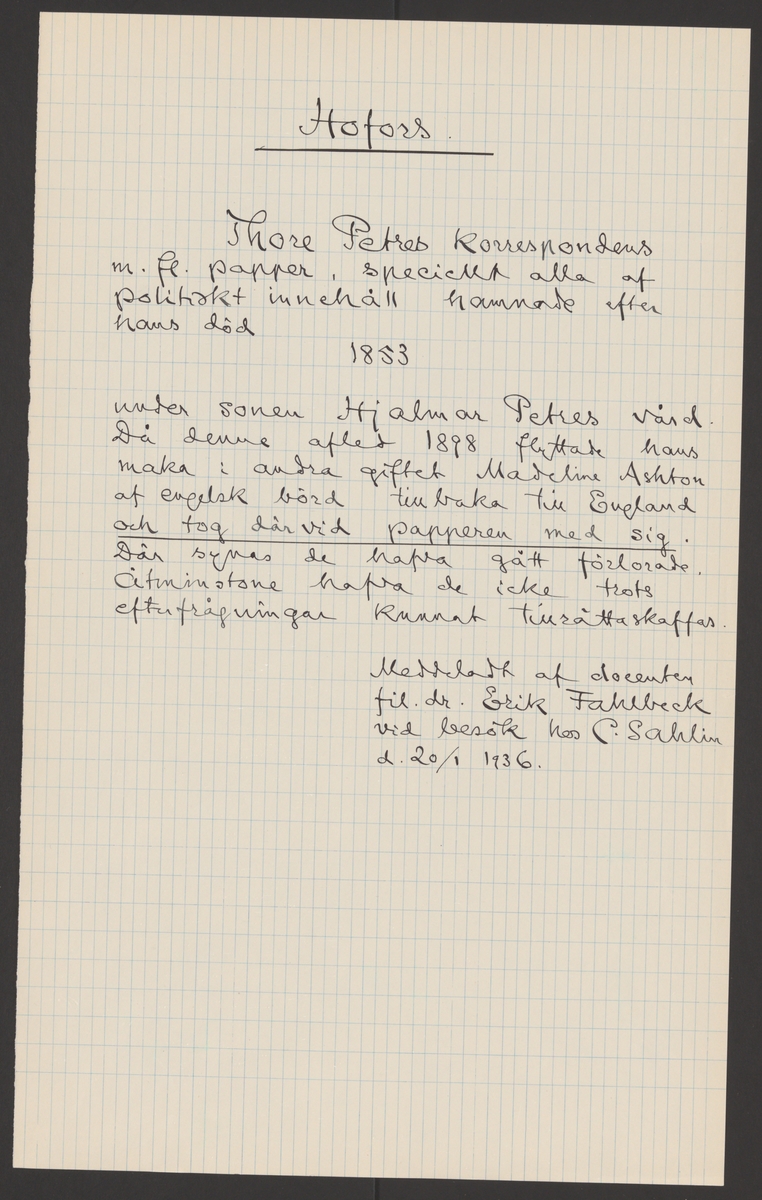 Hofors.
Thore Petres korrespondens
m. fl. papper, speciellt alla af
politiskt innehåll hamnade efter
hans död
1853
under sonen Hjalmar Petres vård.
Då denne afled 1898 flyttade hans
maka i andra giftet Madeline Ashton
af engelsk börd tillbaka till England
och tog därvid papperen med sig.
Där synas de hafva gått förlorade.
Åtminstone hafva de icke trots
efterfrågningar kunnat tillrättaskaffas.
Meddeladt af docenten
fil. dr. Erik Fahlbeck
vid besök hos C. Sahlin
d. 20/1 1936.